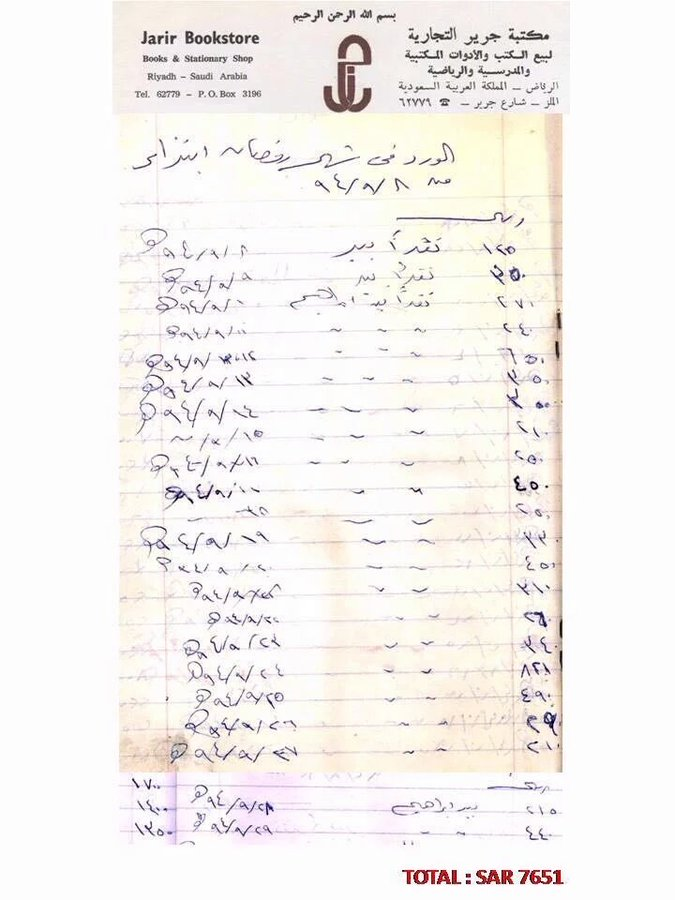 بسم الله الرحمن الرحيم
Jarir Bookstore
Books & Stationary Shop
Riyadh – Saudi Arabia
Tel. 62779 – P.O. Box 3196
مكتبة جرير التجارية
لبيع الكتب والأدوات المكتبية
والمدرسية والرياضية
الرياض – المملكة العربية السعودية
الملز – شارع جرير – ☎ ٦٢٧٧٩
الورد في شهر رمضان ابتداء
من ٩٤/٩/٨
ريال
١٢٥ نقداً بيد ٩٤/٩/٨
٣٥٠ نقداً بيد ٩٤/٩/٩
٢٧٠ نقداً بيد ابراهيم ٩٤/٩/١٠
٢٤٠ " " " ٩٤/٩/١١
٦٥٠ " " "
٣٥٠ " " " ٩٤/٩/١٣
" " " ٩٤/٩/١٤
٢١٠ " " ١٥
٢٥٠ " " ٩٤/٩/١٦
٤٥٠ " "
٢٥٠
٣٣٠ " " ٩٤/٩/١٩
٤٥٠ " " ٩٤/٩/٢٠
٣١٠ " "
" "
٣٤٠ " " ٩٤/٩/٢٣
٨٢١ " " ٩٤/٩/٢٤
٤٩٠ " " ٩٤/٩/٢٥
" " ٩٤/٩/٢٦
٢١٠ " " ٩٤/٩/٢٧
ريال
١٧٠٠
٢١٥ بيد ابراهيم ٩٤/٩/٢٨ ١٤٠٠
٤٤٠ " " ٩٤/٩/٢٩ ١٣٥٠
TOTAL : SAR 7651